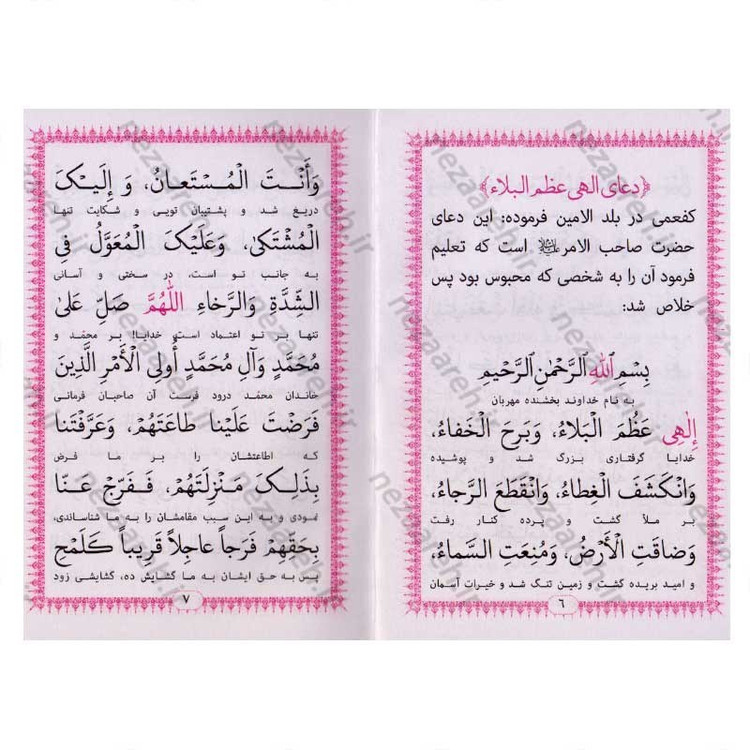 ﴿دعای الهی عظم البلاء﴾
کفعمی در بلد الامین فرموده: این دعای
حضرت صاحب الامر علیه‌السلام است که تعلیم
فرمود آن را به شخصی که محبوس بود پس
خلاص شد:
بِسْمِ اللهِ الرَّحْمٰنِ الرَّحْیمِ
به نام خداوند بخشنده مهربان
اِلٰهِی عَظُمَ الْبَلاءُ، وَبَرِحَ الْخَفاءُ،
خدایا گرفتاری بزرگ شد و پوشیده
وَانْکَشَفَ الْغِطاءُ، وَانْقَطَعَ الرَّجاءُ،
بر ملأ گشت و پرده کنار رفت
وَضاقَتِ الْأَرْضُ، وَمُنِعَتِ السَّماءُ،
و امید بریده گشت و زمین تنگ شد و خیرات آسمان
٦
وَأَنْتَ الْمُسْتَعانُ، وَ إِلَیْکَ
دریغ شد و پشتیبان تویی و شکایت تنها
الْمُشْتَکیٰ، وَعَلَیْکَ الْمُعَوَّلُ فِی
به جانب تو است، در سختی و آسانی
الشِّدَّةِ وَالرَّخاءِ اللّٰهُمَّ صَلِّ عَلیٰ
تنها بر تو اعتماد است، خدایا! بر محمّد و
مُحَمَّدٍ وَآلِ مُحَمَّدٍ أُولِی الْأَمْرِ الَّذِینَ
خاندان محمّد درود فرست آن صاحبان فرمانی
فَرَضْتَ عَلَیْنا طاعَتَهُمْ، وَعَرَّفْتَنا
که اطاعتشان را بر ما فرض
بِذٰلِکَ مَنْزِلَتَهُمْ، فَفَرِّجْ عَنّا
نمودی و به این سبب مقامشان را به ما شناساندی،
بِحَقِّهِمْ فَرَجاً عاجِلاً قَرِیباً کَلَمْحِ
پس به حق ایشان به ما گشایش ده، گشایشی زود
٧
nezaareh.ir